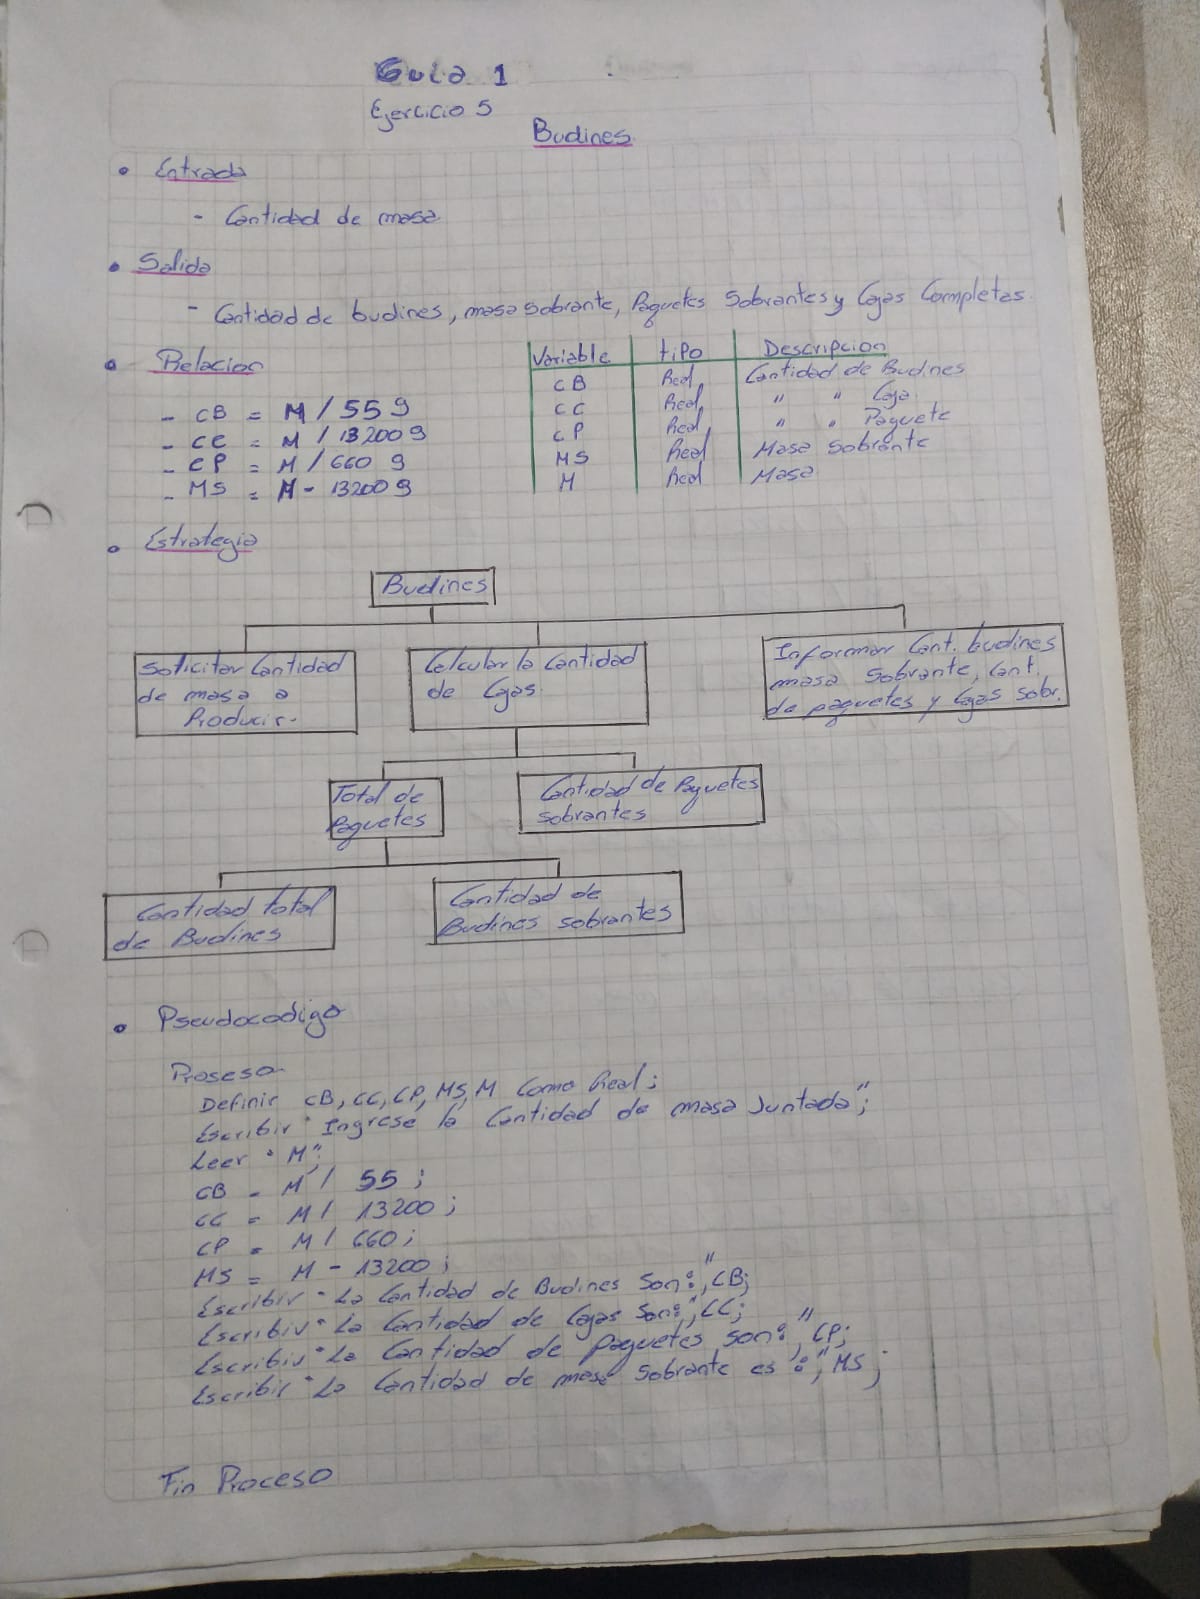 Guia 1
Ejercicio 5
Budines
• Entrada
- Cantidad de masa.
• Salida
- Cantidad de budines, masa sobrante, Paquetes Sobrantes y Cajas Completas.
• Relacion
- CB = M / 55 g
- CC = M / 13200 g
- CP = M / 660 g
- MS = M - 13200 g
Variable tipo Descripcion
CB Real Cantidad de Budines
CC Real " " Caja
CP Real " " Paquete
MS Real Masa Sobrante
M Real Masa
• Estrategia
Budines
Solicitar Cantidad
de masa a
Producir.
Calcular la Cantidad
de Cajas
Informar Cant. budines
masa sobrante, Cant.
de paquetes y Cajas sobr.
Total de
Paquetes
Cantidad de Paquetes
sobrantes
Cantidad total
de Budines
Cantidad de
Budines sobrantes
• Pseudocodigo
Proseso
Definir CB, CC, CP, MS, M Como Real;
Escribir "Ingrese la Cantidad de masa Juntada";
Leer "M";
CB = M / 55;
CC = M / 13200;
CP = M / 660;
MS = M - 13200;
Escribir "La Cantidad de Budines Son:", CB;
Escribir "La Cantidad de Cajas Son:", CC;
Escribir "La Cantidad de paquetes son:", CP;
Escribir "La Cantidad de masa Sobrante es:", MS;
Fin Proceso